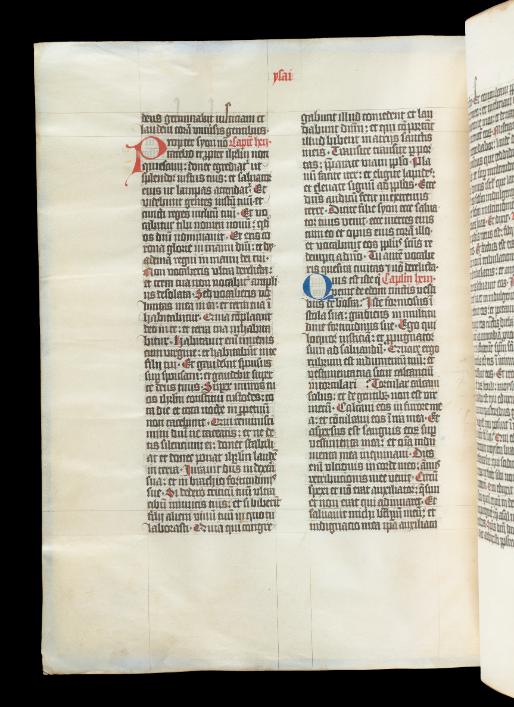 ysai
deus germinabit iusticiam et
laudem corā uniuersis gentibus.
Propter syon nō Capitłm lxij
tacebo et ꝓpter ihrłm non
quiescam: donec egrediat᷑ ut
splendor iustus eius: et saluator
eius ut lampas accendat᷑. Et
videbunt gentes iustū tuū: et
cuncti reges inclitū tuū. Et vo
cabitur tibi nomen nouū: qđ
os dñi nominauit. Et eris co
rona glorie in manu dñi: et dy
adema regni in manu dei tui.
Non vocaberis ultra derelicta:
et terra tua non vocabit᷑ ampli
us desolata. Sed vocaberis vo
luntas mea in ea: et terra tua ī
habitabitur. Quia cōplacuit
dño in te: et terra tua inhabita
bitur. Habitabit enī iuuenis
cum virgine: et habitabūt in te
filij tui. Et gaudebit sponsus
sup sponsam: et gaudebit super
te deus tuus. Super muros tu
os ihrłm constitui custodes: to
ta die et tota nocte in ꝑpetuū
non tacebunt. Qui reminisci
mini dñi ne taceatis: et ne de
tis silencium ei: donec stabili
at et donec ponat ihrłm laudē
in terra. Iurauit dñs in dextera
sua: et in brachio fortitudinis
sue. Si dedero triticū tuū ultra
cibū inimicis tuis: et si biberīt
filij alieni vinū tuū in quo la
borasti. Quia qui congre
gabunt illud comedent et lau
dabunt dñm: et qui cōportant
illud bibent in atrijs sanctis
meis. Transite transite ꝑ por
tas: ꝑparate viam pplo. Pla
nū facite iter: et eligite lapides:
et eleuate signū ad pplos. Ecce
dñs auditū fecit in extremis
terre. Dicite filie syon ecce salua
tor tuus venit: ecce merces eius
cum eo et opus eius corā illo.
et vocabunt eos pplus scūs re
dempti a dño. Tu autē vocabe
ris quesita ciuitas et nō derelicta.
Quis est iste qͥ Capitłm lxiij
venit de edom tinctis vesti
bus de bosra: Iste formosus ī
stola sua: gradiens in multitu
dine fortitudinis sue. Ego qui
loquor iusticiā: et ꝓpugnator
sum ad saluandū. Quare ergo
rubrum est indumentū tuū: et
vestimenta tua sicut calcantiū
in torculari: Torcular calcaui
solus: et de gentibꝫ non est vir
mecū. Calcaui eos in furore me
o: et cōculcaui eos ī ira mea. Et
aspersus est sanguis eius sup
vestimenta mea: et oīa indu
menta mea inquinaui. Dies
enī ulcionis in corde meo: ānus
retribucionis mee venit. Circū
spexi et nō erat auxiliator: q̄siui
et non erat qui adiuuaret. Et
saluauit michi brachiū meū: et
indignacio mea ipa auxiliata